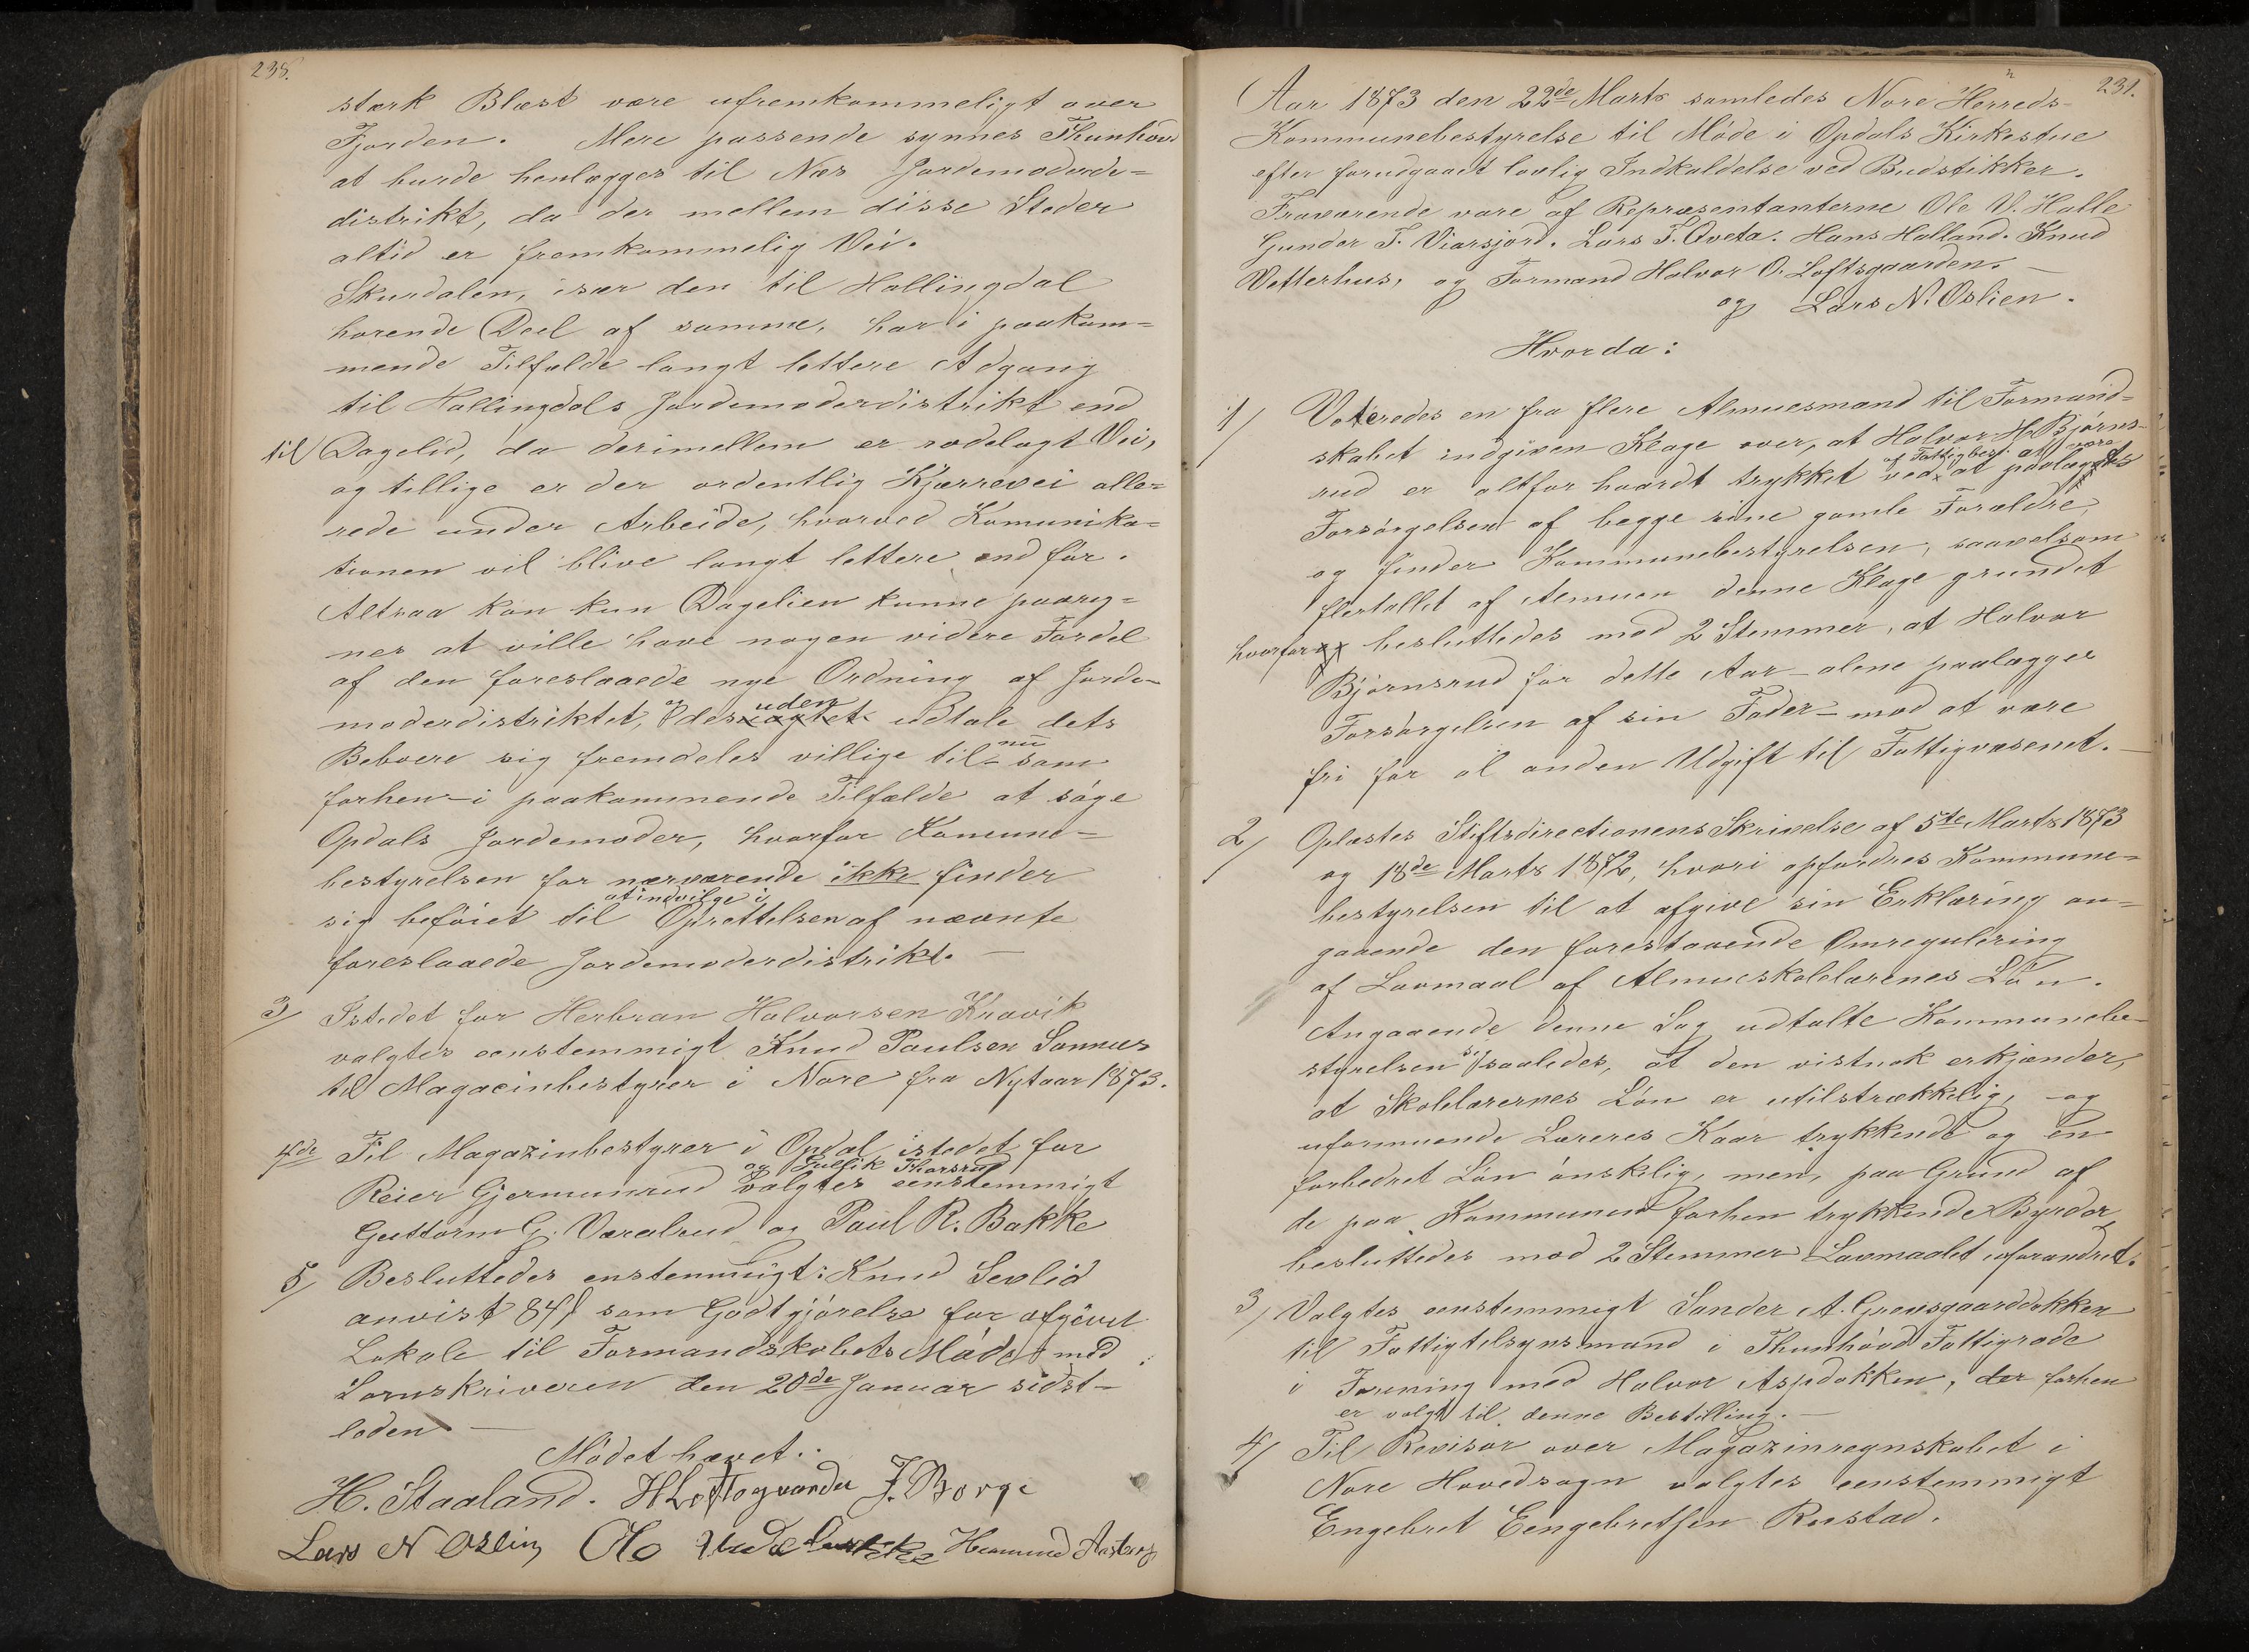 238.
stærk Blæst være ufremkommeligt over
Fjorden. Mere passende synnes Thunhövd
at burde henlægges til Næs Jordemoder-
distrikt, da der mellem disse Steder
altid er fremkommelig Vei.
Skurdalen, især den til Hallingdal
hørende Deel af samme, har i paakom=
mende Tilfælde langt lettere Adgang
til Hallingdals Jordemoderdistrikt end
til Dagelid, da derimellem er rodelagt Vei,
og tillige er der ordentlig Kjærrevei alle=
rede under Arbeide, hvorved Komunika=
tionen vil blive langt lettere end för.
Altsaa kan kun Dagelien kunne paareg=
nes at ville have nogen videre Fordel
af den foreslaaede nye Ordning af Jorde-
moderdistriktet, og desuden udtale dets
Beboere sig fremdeles villige til nu som
forhen - i paakommende Tilfælde at söge
Opdals Jordemoder, hvorfor Komune=
bestyrelsen for nærværende ikke finder
sig beföiet til at indvilge i Oprettelsen af nævnte
foreslaaede Jordemoderdistrikt. —
3/ Istedet for Herbran Halvorsen Kravik
valgtes eenstemmigt Knud Paulsen Sønnes
til Magacinbestyrer i Nore fra Nytaar 1873.
4de Til Magazinbestyrer i Opdal istedet for
Reier Gjermunsrud og Gullik Thorsrud valgtes eenstemmigt
Guttorm G. Væralrud og Paul R. Bakke
5/ Besluttedes enstemmigt: Knud Sevlid
anvist 84 ß som Godtgjörelse for afgivet
Lokale til Formandskabets Möde med
Lensskriveren den 20de Januar sidst-
leden —
Mödet hævet.
H. Staaland. H Loftsgaarden J. Borge
Lars N Oslien Ole Hermund Aasberg
231.
Aar 1873 den 22de Marts samledes Nore Herreds-
Kommunebestyrelse til Möde i Opdals Kirkestue
efter forudgaaet lovlig Indkaldelse ved Budstikker.
Fraværende vare af Repræsentanterne Ole V. Halle
Gunder T. Viarsjord. Lars T. Qveta. Hans Halland. Knud
Vetterhus, og Formand Halvor O. Loftsgaarden. —
og Lars N. Oslien.
Hvorda:
1/ Voteredes en fra flere Almuesmænd til Formand-
skabet indgiven Klage over, at Halvor H. Björns-
rud er altfor haardt trykket ved af Fattigbest. at være paalagt
Forsörgelsen af begge sine gamle Forældre,
og finder Kommunebestyrelsen, saavelsom
flertallet af Almuen denne Klage grundet
hvorfor besluttedes mod 2 Stemmer, at Halvor
Björnsrud for dette Aar - alene paalægges
Forsörgelsen af sin Fader - mod at være
fri for al anden Udgift til Fattigvæsenet. —
2/ Oplæstes Stiftsdirectionens Skrivelse af 5te Marts 1873
og 18de Marts 1872, hvori opfordres Kommune=
bestyrelsen til at afgive sin Erklæring an=
gaaende den forestaaende Omregulering
af Lavmaal af Almueskolelærenes Lön.
Angaaende denne Sag udtalte Kommunebe-
styrelsen sig saaledes, at den vistnok erkjænder,
at Skolelærernes Lön er utilstrækkelig, og
uformuende Læreres Kaar trykkende og en
forbedret Lön önskelig, men, paa Grund af
de paa Kommunen forhen trykkende Byrder,
besluttedes mod 2 Stemmer Lavmaalet uforandret.
3/ Valgtes eenstemmigt Sander A. Grevsgaarddokken
til Fattigtilsynsmand i Thunhövd Fattigrode
i Forening med Halvor Aspdokken, der forhen
er valgt til denne Bestilling. —
4/ Til Revisor over Magazinregnskabet i
Nore Hovedsogn valgtes eenstemmigt
Engebret Eengebretsen Rustad.